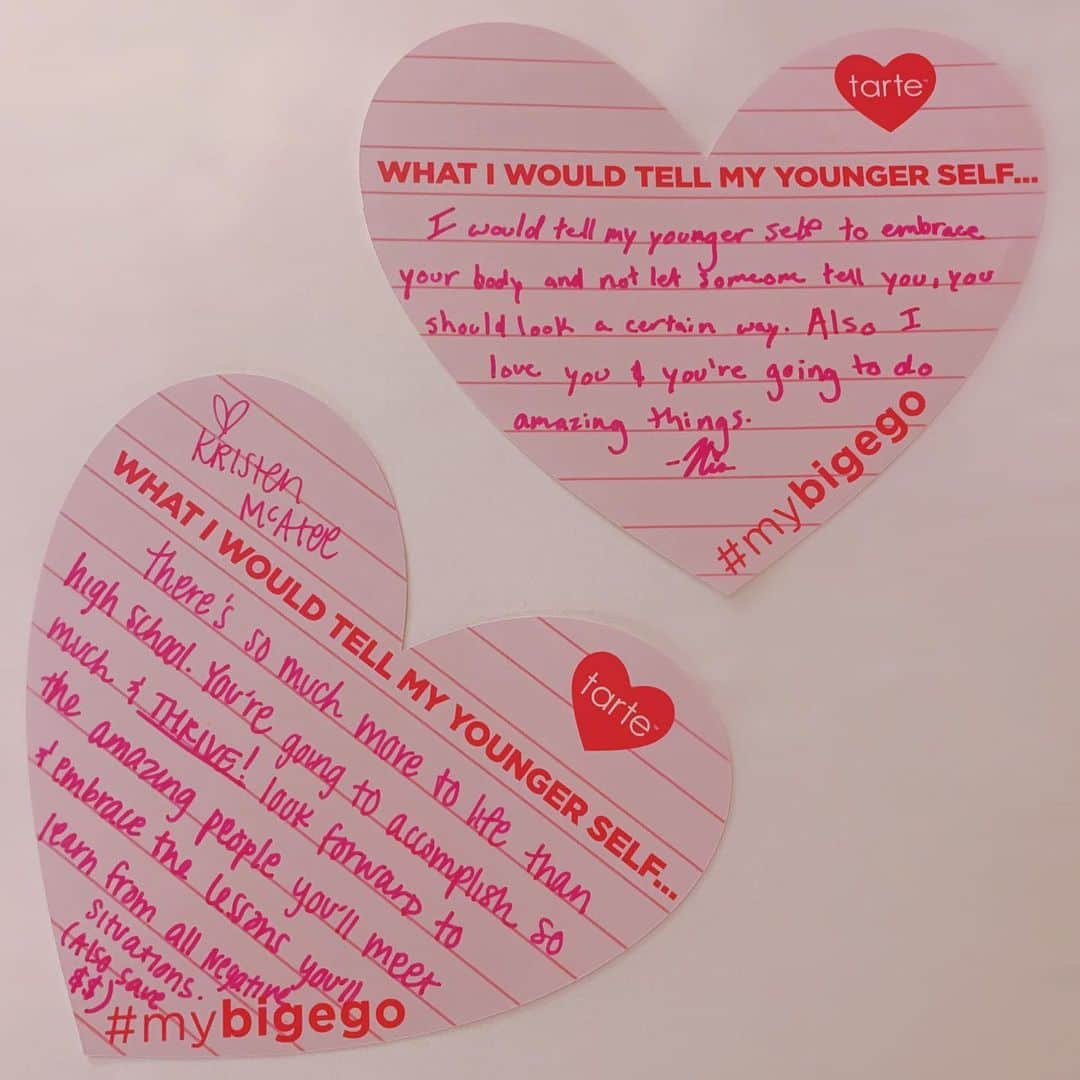 tarte™
WHAT I WOULD TELL MY YOUNGER SELF...
I would tell my younger self to embrace
your body and not let someone tell you, you
should look a certain way. Also I
love you & you're going to do
amazing things.
#mybigego
Kristen
McAtee
WHAT I WOULD TELL MY YOUNGER SELF...
tarte™
there's so much more to life than
high school. You're going to accomplish so
much & THRIVE! look forward to
the amazing people you'll meet
& embrace the lessons you'll
learn from all negative
situations.
(Also save
$$)
#mybigego